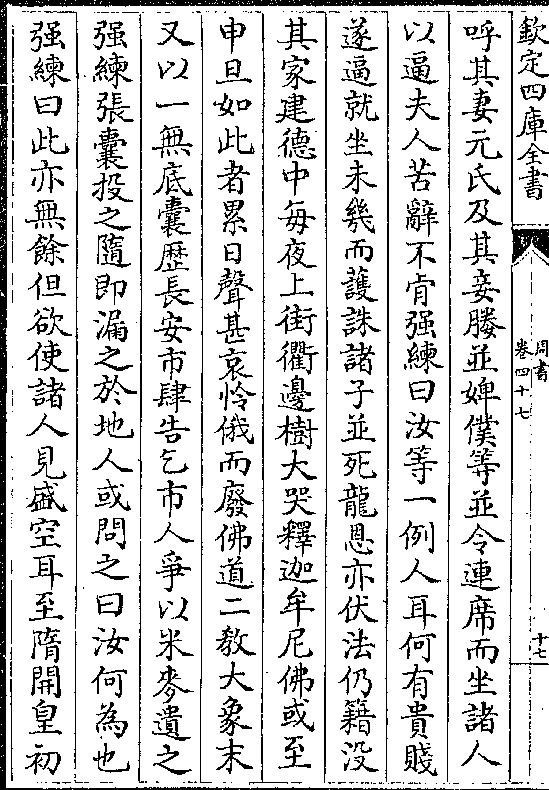 欽定四庫全書
周書
卷四十七
十七
呼其妻元氏及其妾媵並婢僕等並令連席而坐諸人
以逼夫人苦辭不肯强練曰汝等一例人耳何有貴賤
遂逼就坐未幾而護誅諸子並死龍恩亦伏法仍籍没
其家建德中每夜上街衢邊樹大哭釋迦牟尼佛或至
申旦如此者累日聲甚哀怜俄而廢佛道二教大象末
又以一無底囊歷長安市肆告乞市人爭以米麥遺之
强練張囊投之隨即漏之於地人或問之曰汝何為也
强練曰此亦無餘但欲使諸人見盛空耳至隋開皇初